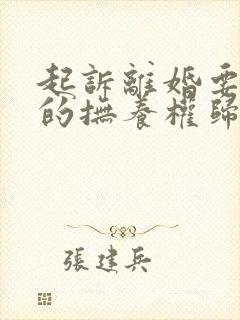 起訴離婚要
的撫養權歸
張建兵